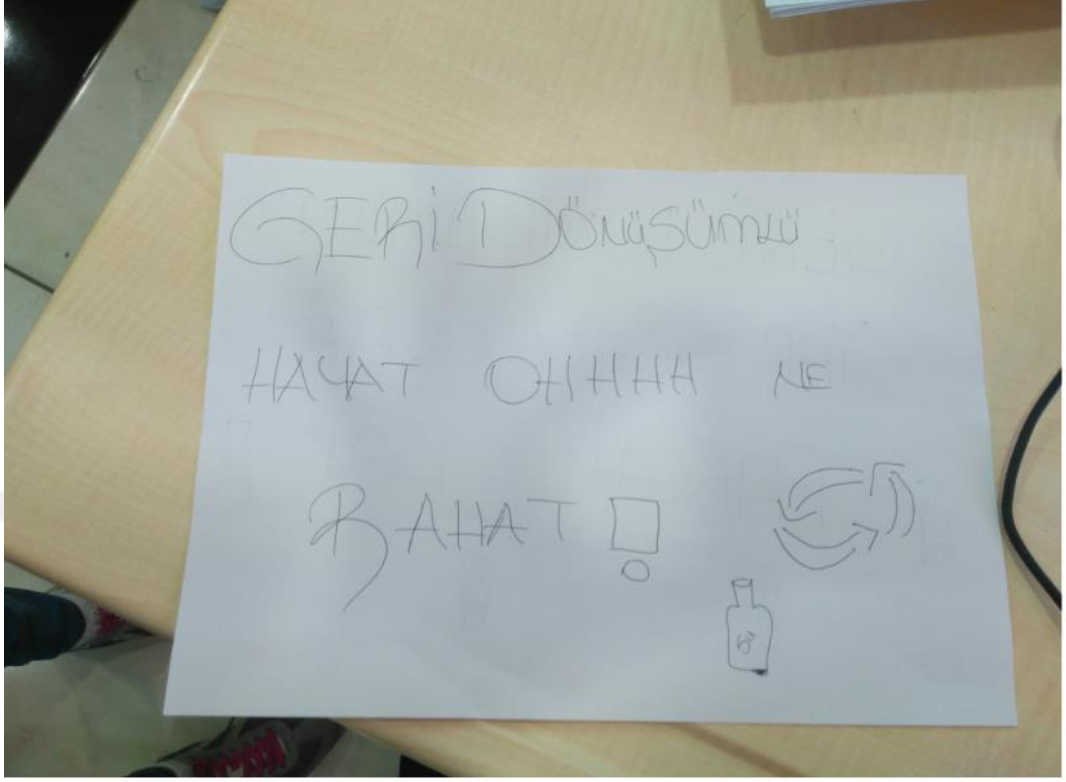 GERİ DÖNÜŞÜMLÜ
HAYAT OHHHH NE
RAHAT!